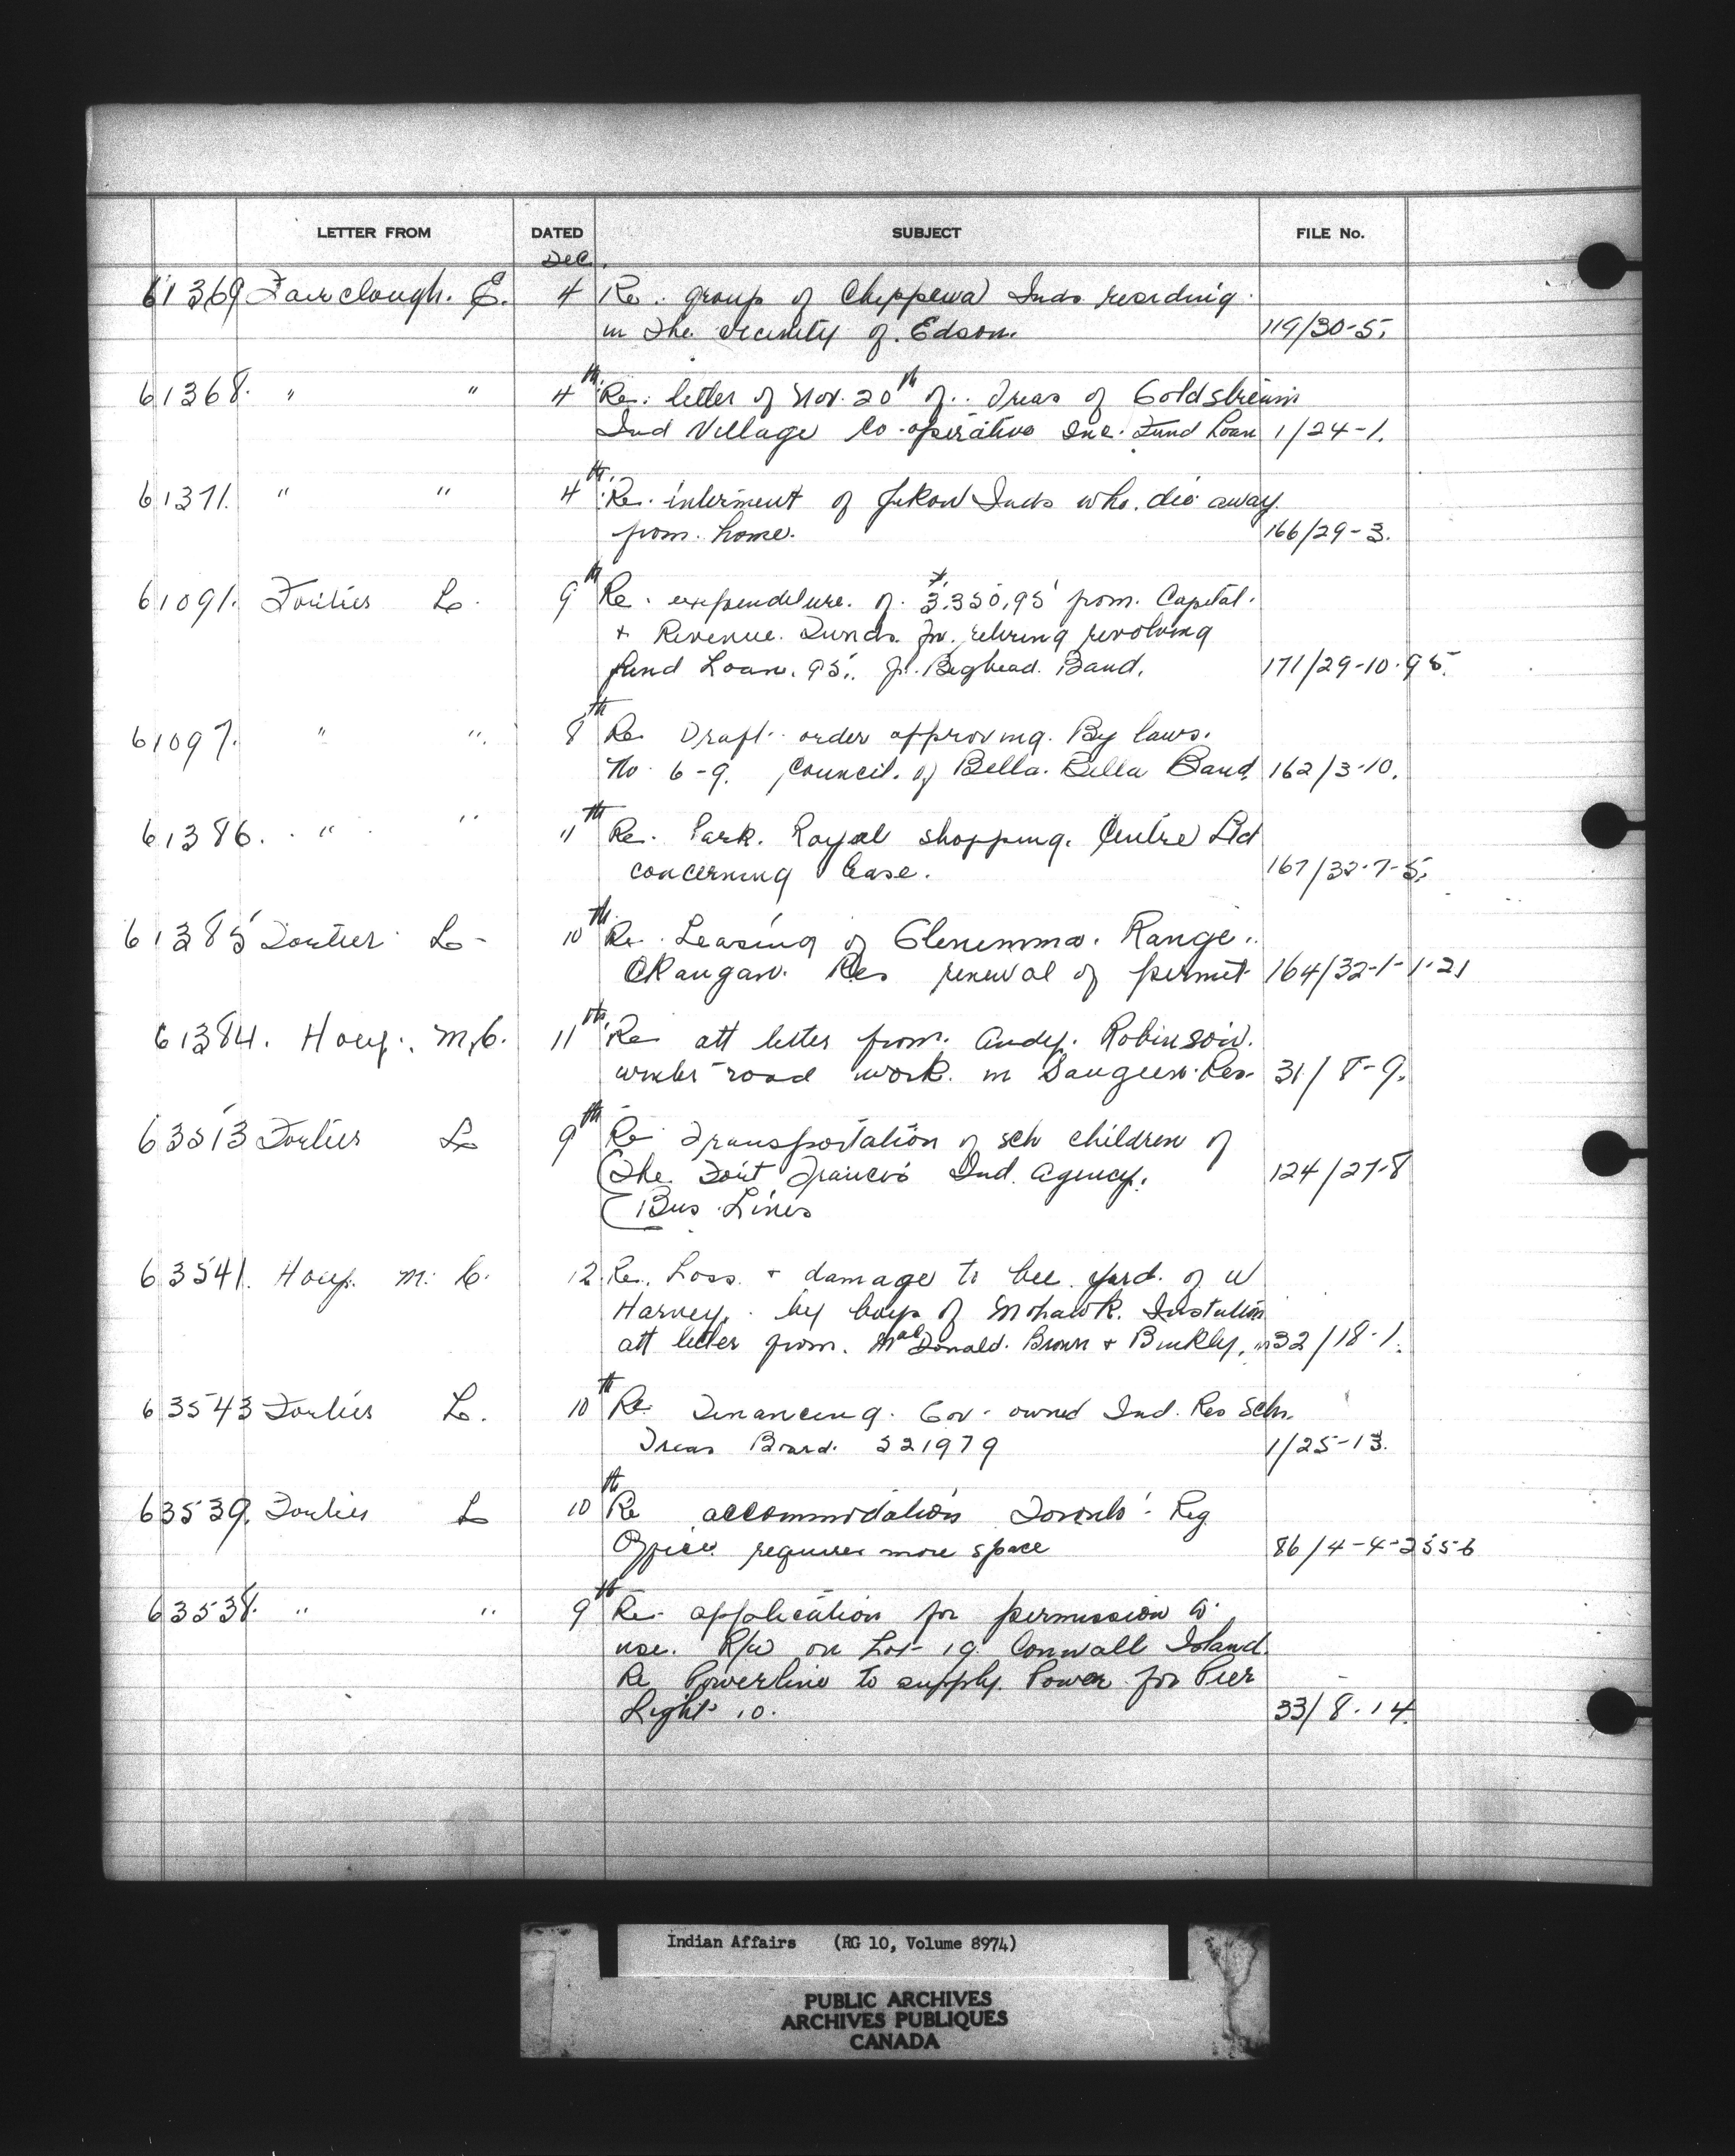 LETTER FROM DATED SUBJECT FILE No.
Dec.
61369 Fairclough. E. 4 Re. group of Chippewa Inds residing
in the vicinity of Edson. 119/30-5.
61368. " " 4th Re. letter of Nov. 20th of.. Treas of Goldstream
Ind Village Co-operative Inc. Fund Loan 1/24-1.
61371. " " 4th Re. interment of Yukon Inds who. die away
from. home. 166/29-3.
61091. Fortier L. 9th Re. expenditure. of. $3.350.95 from. Capital.
+ Revenue. Funds. for. retiring revolving
fund Loan. 95. for. Bighead. Band. 171/29-10-95.
61097. " ". 8th Re Draft. order approving. By laws.
No. 6-9. Council. of Bella. Bella Band. 162/3-10.
61386. " " 11th Re. Park. Royal shopping. Centre Ltd
concerning lease. 167/32-7-5.
61385 Fortier L- 10th Re. Leasing of Glenemma. Range.
Okangan. Res renewal of permit 164/32-1-1-21
61384. Houp. M.C. 11th Re att letter from. Andy. Robinson.
winter road work. in Saugeen. Res. 31/8-9.
63513 Fortier L 9th Re Transportation of sch children of
(The Fort Francis Ind. Agency.
( Bus. Lines 124/27-8
63541. Houp. M. C. 12 Re. Loss. + damage to bee. yard. of W
Harvey. by boys of Mohawk. Institution
att letter from. MacDonald. Brown + Binkley. 32/18-1.
63543 Fortier L. 10th Re Financing. Gov. owned Ind. Res Sch.
Treas Board. 521979 1/25-13.
63539. Fortier L 10th Re accommodation Toronto. Reg
Office requires more space 86/4-4-2556
63538. " " 9th Re. application for permission to
use. R/W on Lot 19. Cornwall Island.
Re Powerline to supply. Power for Pier
Light 10. 33/8-14.
Indian Affairs (RG 10, Volume 8974)
PUBLIC ARCHIVES
ARCHIVES PUBLIQUES
CANADA